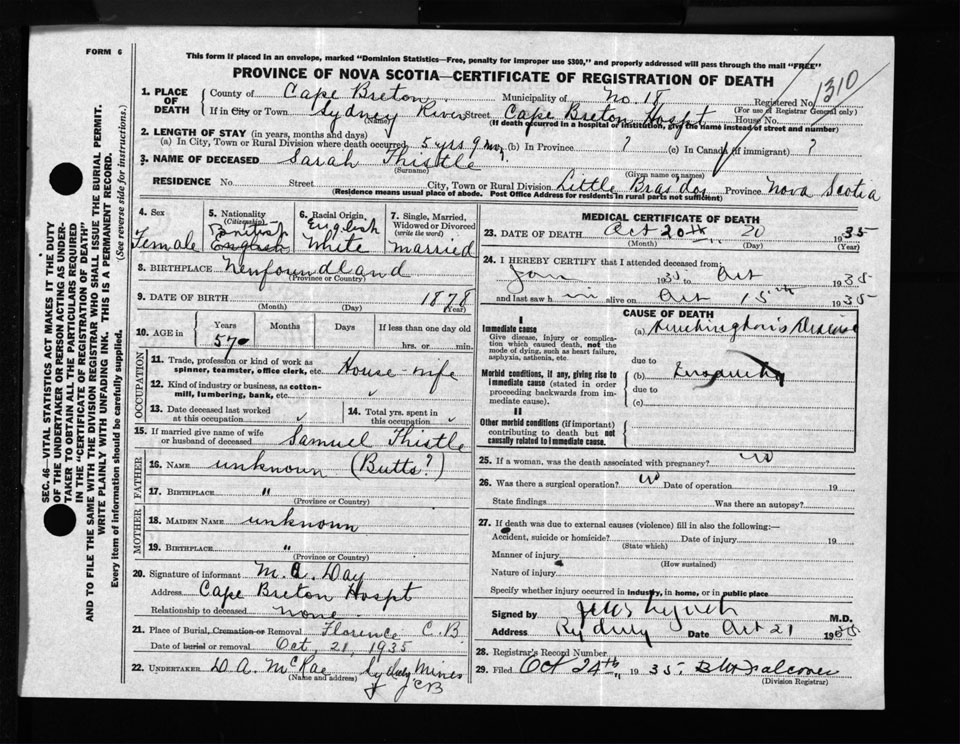 FORM 6
This form if placed in an envelope, marked "Dominion Statistics—Free, penalty for improper use $300," and properly addressed will pass through the mail "FREE"
PROVINCE OF NOVA SCOTIA—CERTIFICATE OF REGISTRATION OF DEATH
1310
1. PLACE OF DEATH County of Cape Breton Municipality of No. 18 Registered No.
(For use of Registrar General only)
If in City or Town Sydney River Street Cape Breton Hospt House No.
(Name) (If death occurred in a hospital or institution, give the name instead of street and number)
2. LENGTH OF STAY (in years, months and days)
(a) In City, Town or Rural Division where death occurred 5 yrs 9 mos (b) In Province ? (c) In Canada (if immigrant) ?
3. NAME OF DECEASED Sarah Thistle
(Surname) (Given name or names)
RESIDENCE No. Street City, Town or Rural Division Little Bras dor Province Nova Scotia
(Residence means usual place of abode. Post Office Address for residents in rural parts not sufficient)
4. Sex Female
5. Nationality (Citizenship) British English
6. Racial Origin, English White
7. Single, Married, Widowed or Divorced (write the word) married
8. BIRTHPLACE Newfoundland
(Province or Country)
9. DATE OF BIRTH 1878
(Month) (Day) (Year)
10. AGE in Years Months Days If less than one day old
57 hrs. or min.
OCCUPATION
11. Trade, profession or kind of work as spinner, teamster, office clerk, etc. House-wife
12. Kind of industry or business, as cotton-mill, lumbering, bank, etc. ✓
13. Date deceased last worked at this occupation ✓ 14. Total yrs. spent in this occupation ✓
15. If married give name of wife or husband of deceased Samuel Thistle
FATHER
16. NAME unknown (Butts?)
17. BIRTHPLACE "
(Province or Country)
MOTHER
18. MAIDEN NAME unknown
19. BIRTHPLACE "
(Province or Country)
20. Signature of informant M. A. Day
Address Cape Breton Hospt
Relationship to deceased none
21. Place of Burial, Cremation or Removal Florence C.B
Date of burial or removal Oct, 21, 1935
22. UNDERTAKER D A. McRae Sydney Mines CB
(Name and address)
MEDICAL CERTIFICATE OF DEATH
23. DATE OF DEATH Oct 20th 20 1935
(Month) (Day) (Year)
24. I HEREBY CERTIFY that I attended deceased from:
Jan 1935 Oct 1935
and last saw h alive on Oct 15th 1935
CAUSE OF DEATH
I
Immediate cause
Give disease, injury or complication which caused death, not the mode of dying, such as heart failure, asphyxia, asthenia, etc.
(a) Huntington's Disease
due to
Morbid conditions, if any, giving rise to immediate cause (stated in order proceeding backwards from immediate cause).
(b)
due to
(c)
II
Other morbid conditions (if important) contributing to death but not causally related to immediate cause.
25. If a woman, was the death associated with pregnancy? no
26. Was there a surgical operation? no Date of operation 19
State findings Was there an autopsy?
27. If death was due to external causes (violence) fill in also the following:—
Accident, suicide or homicide? Date of injury 19
(State which)
Manner of injury
(How sustained)
Nature of injury
Specify whether injury occurred in industry, in home, or in public place
Signed by Lynch M.D.
Address Sydney Date Oct 21 1935
28. Registrar's Record Number
29. Filed Oct 24th 1935. Falconer
(Division Registrar)
SEC. 46—VITAL STATISTICS ACT MAKES IT THE DUTY
OF THE UNDERTAKER OR PERSON ACTING AS UNDERTAKER
TO OBTAIN ALL THE PARTICULARS REQUIRED
IN THE "CERTIFICATE OF REGISTRATION OF DEATH"
AND TO FILE THE SAME WITH THE DIVISION REGISTRAR WHO SHALL ISSUE THE BURIAL PERMIT.
WRITE PLAINLY WITH UNFADING INK. THIS IS A PERMANENT RECORD.
Every item of information should be carefully supplied. (See reverse side for instructions.)